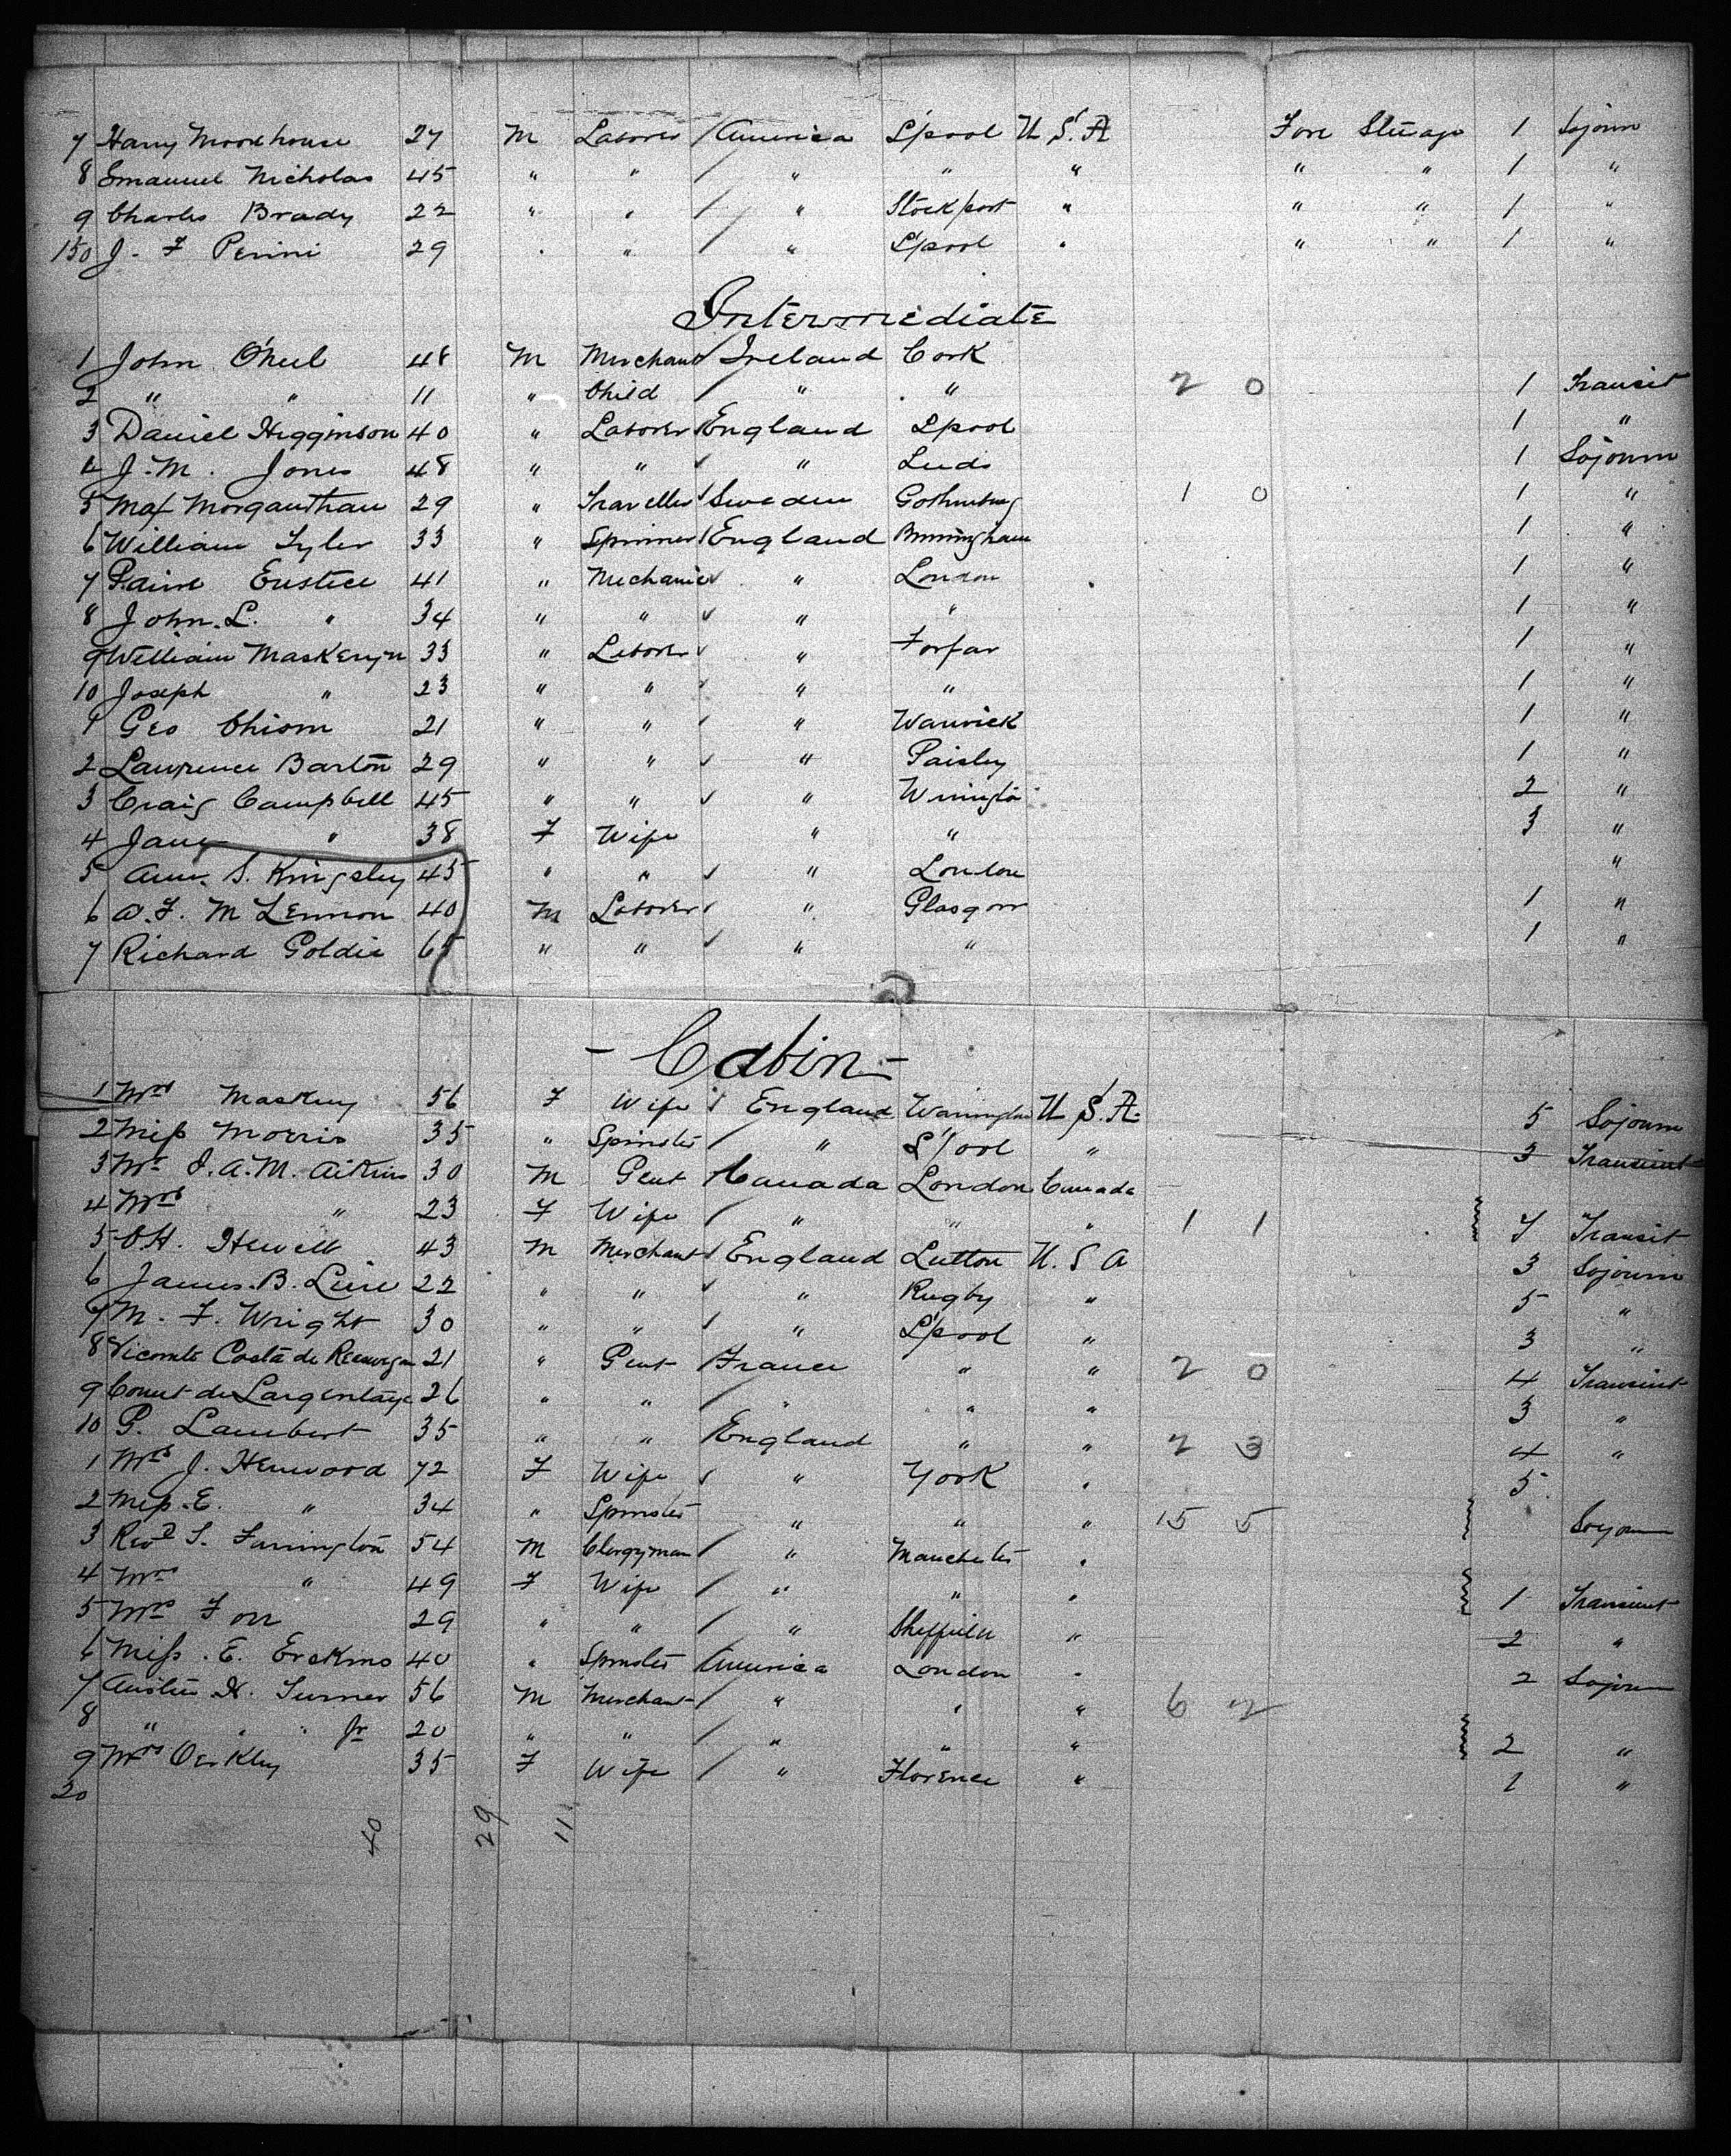 7 Harry Moorhouse 27 M Laborer / America L'pool U.S.A Fore Steerage 1 Sojourn
8 Emanuel Nicholas 45 " " / " " " " " 1 "
9 Charles Brady 22 " " / " Stockport " " " 1 "
150 J. F Perini 29 " " / " L'pool " " " 1 "
Intermediate
1 John O'Neil 48 M Merchant / Ireland Cork
2 " " 11 " Child / " " 2 0 1 Transit
3 Daniel Higginson 40 " Laborer / England Lpool 1 "
4 J. M. Jones 48 " " ✓ " Leeds 1 Sojourn
5 Max Morganthau 29 " Traveller ✓ Sweden Gothenburg 1 0 1 "
6 William Tyler 33 " Spinner / England Birmingham 1 "
7 Eustice 41 " Mechanic ✓ " London 1 "
8 John. L. " 34 " " ✓ " " 1 "
9 William Maskeryn 33 " Laborer ✓ " Forfar 1 "
10 Joseph " 23 " " ✓ " " 1 "
1 Geo Chism 21 " " ✓ " Warwick 1 "
2 Lawrence Barton 29 " " ✓ " Paisley 1 "
3 Craig Campbell 45 " " ✓ " 2 "
4 Jane " 38 F Wife " " 3 "
5 Ann. S. Kingsley 45 " " ✓ " London "
6 A. F. McLennon 40 M Laborer ✓ " Glasgow 1 "
7 Richard Goldie 65 " " ✓ " " 1 "
- Cabin -
1 Mrs Maskery 56 F Wife ✓ England Warrington U.S.A. 5 Sojourn
2 Miss Morris 35 " Spinster / " L'pool " 3 Transient
3 Mr J. A. M. Aikins 30 M Gent / Canada London Canada
4 Mrs " 23 F Wife / " " " 1 1 7 Transit
5 O.H. Hewett 43 M Merchant ✓ England Lutton U.S A 3 Sojourn
6 James. B. 22 " " ✓ " Rugby " 5 "
7 M. F. Wright 30 " " ✓ " L'pool " 3 "
8 Vicomte Costa de 21 " Gent / France " " 2 0 4 Transient
9 Count de Largentaye 26 " " / " " " 3 "
10 P. Lambert 35 " " / England " " 2 3 4 "
1 Mrs J. Henwood 72 F Wife ✓ " York " 5
2 Miss. E. " 34 " Spinster " " " 15 5 Sojourn
3 Revd S. Farrington 54 M Clergyman / " Manchester "
4 Mrs " 49 F Wife / " " " 1 Transient
5 Mrs 29 " " / " Sheffield " 2 "
6 Miss. E. Erskine 40 " Spinster / America London " 2 Sojourn
7 Austin H. Turner 56 M Merchant / " " " 6 2
8 " " " Jr 20 " " / " " " 2 "
9 Mrs Oerkley 35 F Wife / " Florence " 1 "
20
40 29 11